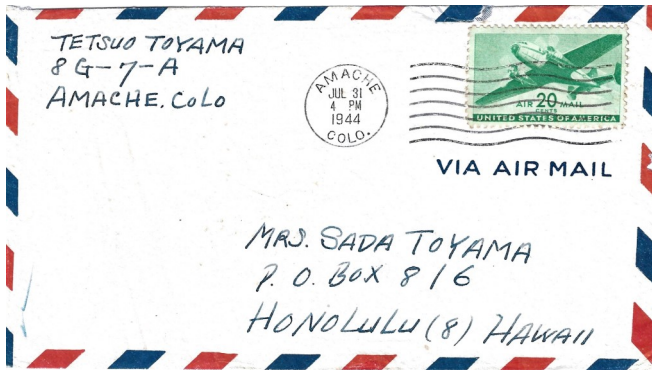 TETSUO TOYAMA
8G-7-A
AMACHE, COLO
AMACHE
JUL 31
4 PM
1944
COLO.
AIR 20 MAIL
CENTS
UNITED STATES OF AMERICA
VIA AIR MAIL
MRS. SADA TOYAMA
P. O. BOX 816
HONOLULU (8) HAWAII